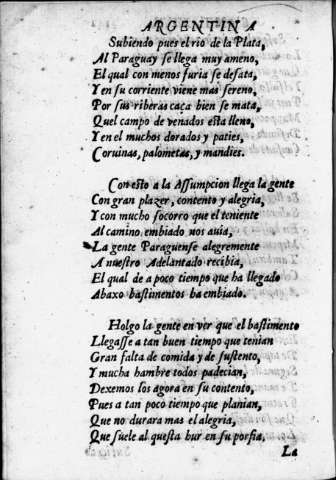 ARGENTINA
Subiendo pues el rio de la Plata,
Al Paraguay se llega muy ameno,
El qual con menos furia se desata,
Y en su corriente viene mas sereno,
Por sus riberas caça bien se mata,
Quel campo de venados esta lleno,
Y en el muchos dorados y paties,
Coruinas, palometas, y mandies.
Con esto a la Assumpcion llega la gente
Con gran plazer, contento y alegria,
Y con mucho socorro que el teniente
Al camino embiado nos auia,
La gente Paraguense alegremente
A nuestro Adelantado recibia,
El qual de a poco tiempo que ha llegado
Abaxo bastimentos ha embiado.
Holgo la gente en ver que el bastimento
Llegasse a tan buen tiempo que tenian
Gran falta de comida y de sustento,
Y mucha hambre todos padecian,
Dexemos los agora en su contento,
Pues a tan poco tiempo que planian,
Que no durara mas el alegria,
Que suele al questa hur en su porfia,
La